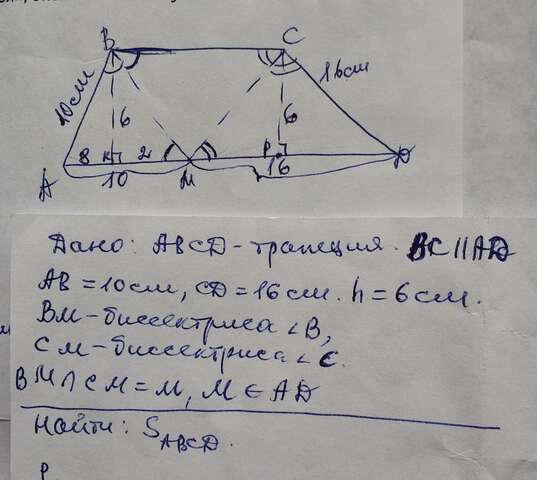 B C
10см 16см
6 6
8 K 2 P
A 10 M 16 D
Дано: ABCD-трапеция. BC||AD
AB=10см, CD=16см. h=6см.
BM-биссектриса ∠B,
CM-биссектриса ∠C.
BM∩CM=M, M∈AD
Найти: S_ABCD.
P